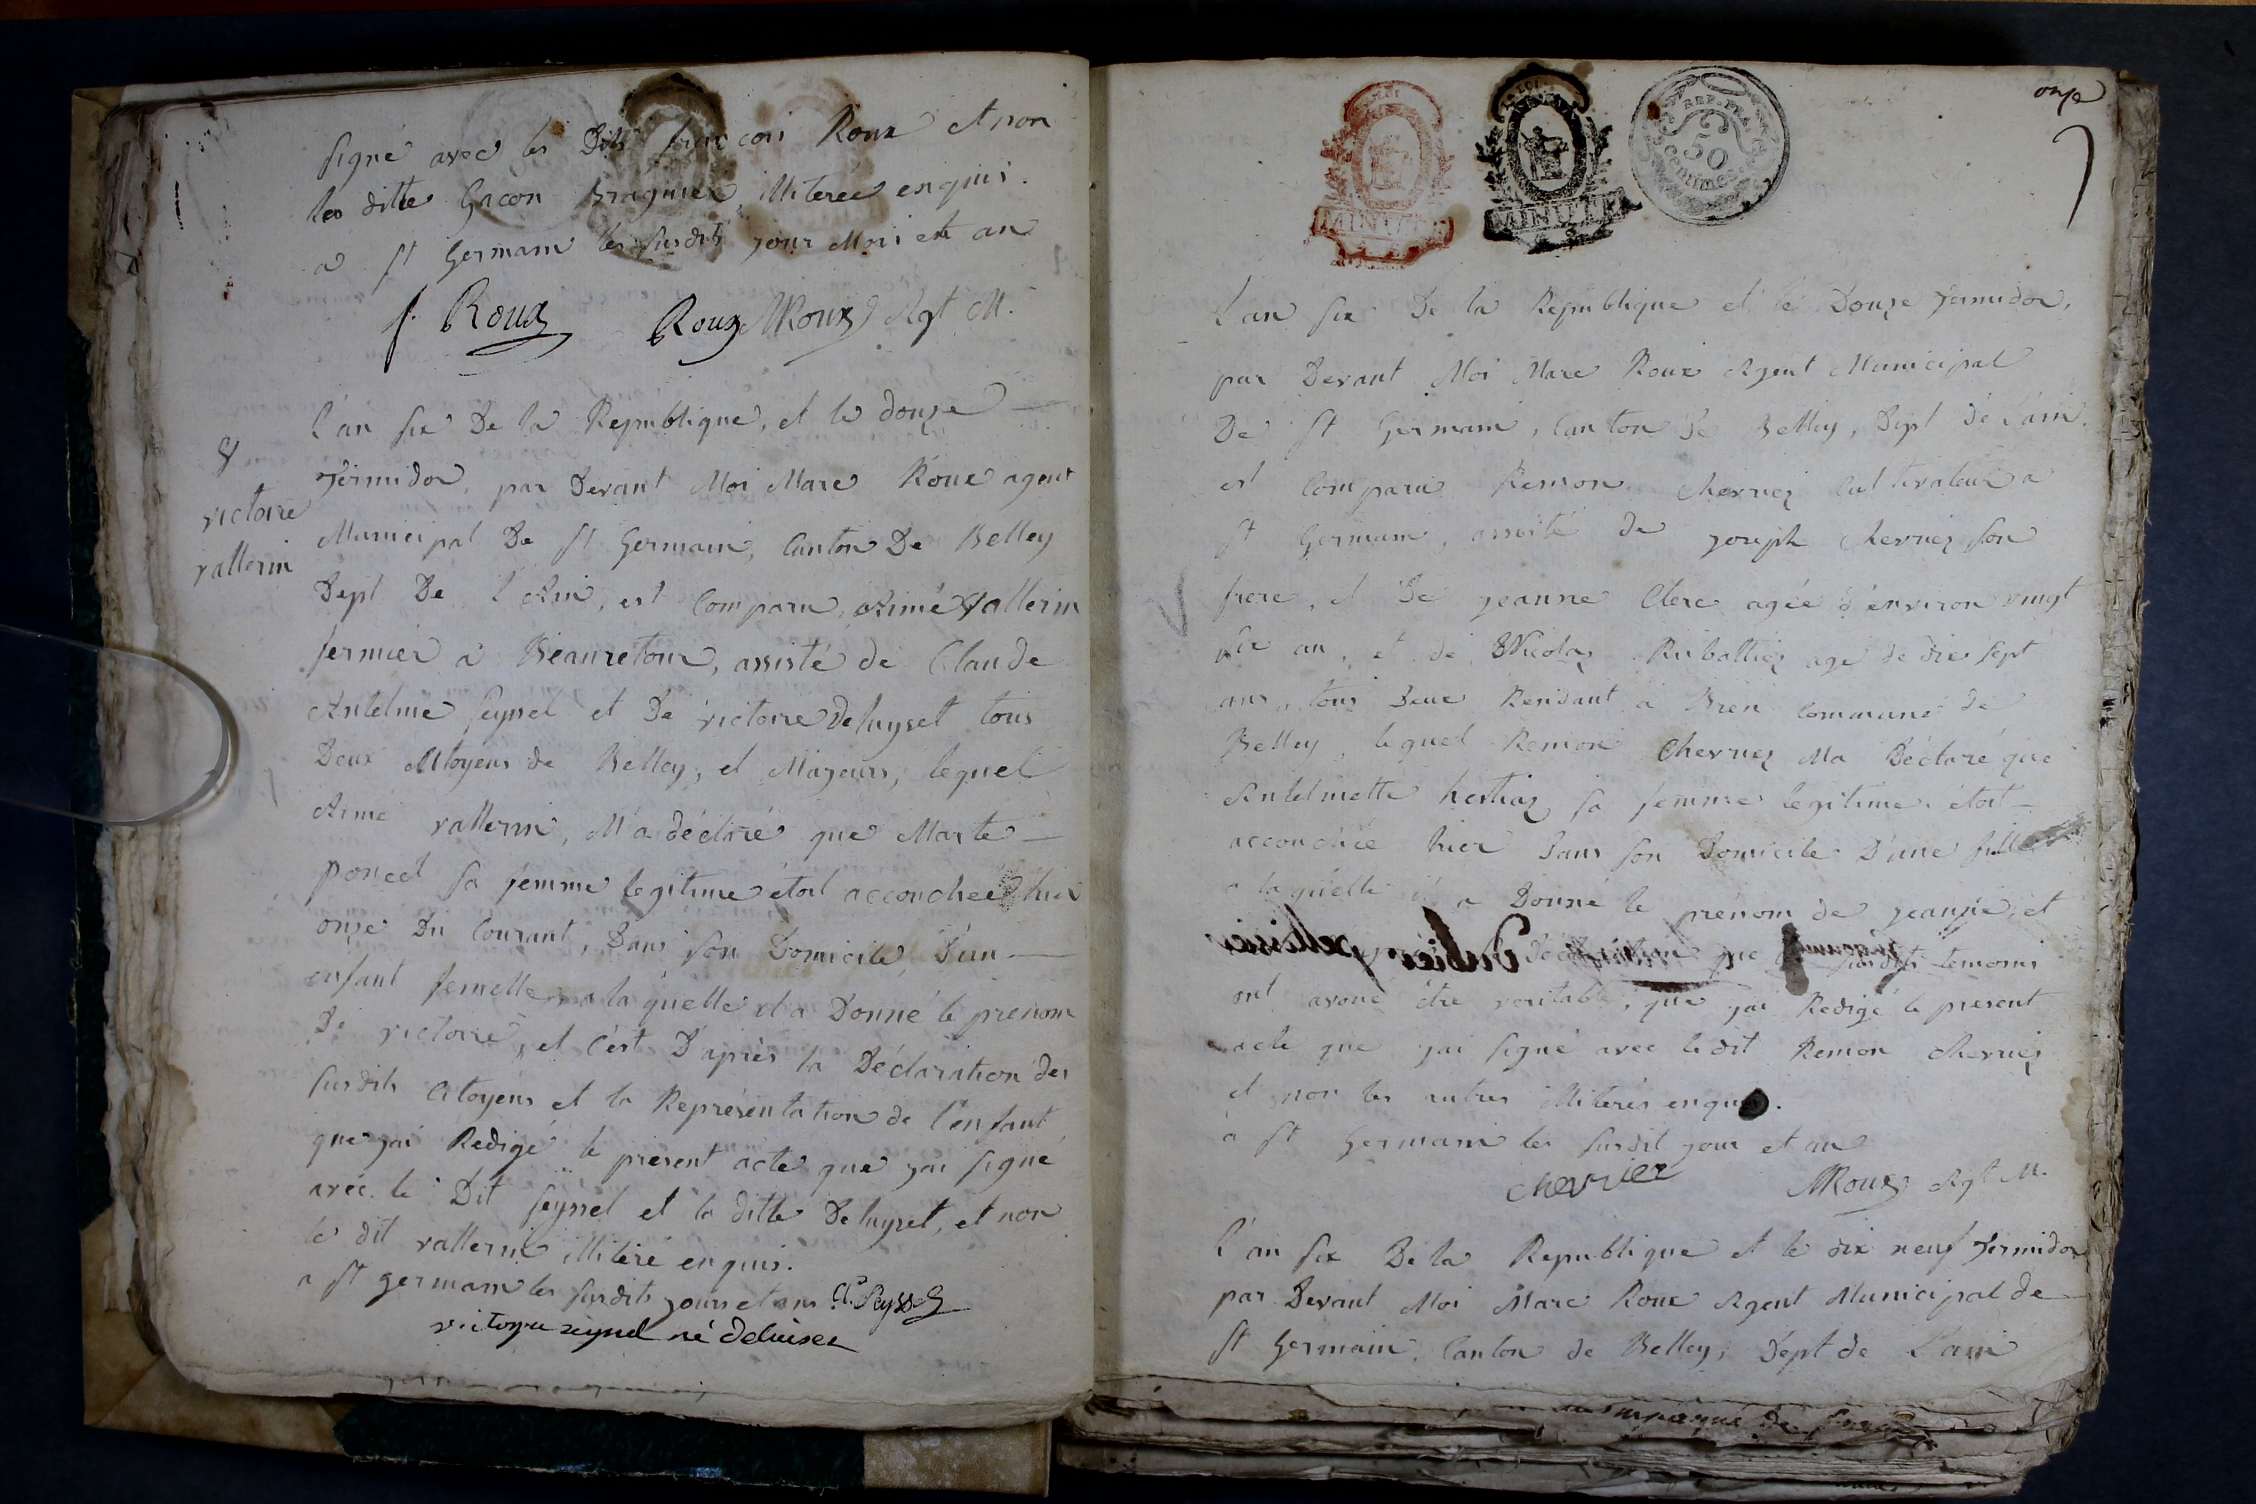 signé avec les Dits françois Roux et non
la ditte Gacon Braguier, illiterée enquis.
a St Germain les susdits jour Mois et an
f. Roux Roux MRoux Agt M.
8
victoire
vallerin
l'an six De la Republique, et le douze
fermidor, par Devant Moi Marc Roux agent
Municipal De St Germain, Canton De Belley
Dept De l'Ain, est Comparu, Aimé vallerin
fermier à Beauretour, assisté de Claude
Antelme Seyssel et De victoire Deluyset tous
Deux Citoyens de Belley, et Majeurs, lequel
Aimé vallerin, M'a déclaré que Marte
poncet sa femme legitime étoit accouchée hier
onze Du Courant, Dans son Domicile, D'un
enfant femelle, a la quelle il a Donné le prenom
De victoire, et c'est D'après la Déclaration des
susdits Citoyens et la Représentation de l'enfant
que jai Redigé le present acte que jai signé
avec le Dit Seyssel et la ditte Deluyset, et non
le dit vallerin illiteré enquis.
a St germain les susdits jours et ans Cl. Seyssel
victoire seyssel né deluiset
onze
LA LOI
MINUTE
LA LOI
MINUTE
REP. FRA.
50
centimes
L'an six De la Republique et le Douze fermidor,
par Devant Moi Marc Roux Agent Municipal
De St Germain, Canton De Belley, Dept De L'ain.
est Comparu Remon Chervier Cultivateur a
St Germain, assisté de joseph Chervier son
frere, et De jeanne Clerc agée d'environ vingt
six an, et de Nicolas Ruballier age de dix sept
ans, tous Deux Residant a Brén Commune de
Belley, lequel Remon Chervier Ma Déclaré que
Antelmette hostiaz sa femme legitime étoit
accouchée hier Dans son Domicile D'une fille
a laquelle il a Donné le prénom de jeanne, et
Déclaration que les susdits temoins
ont avoué être veritable, que jai Redigé le present
acte que jai signé avec le dit Remon Chervier
et non les autres illiterés enquis.
a St Germain les susdit jour et an
Chevrier MRoux Agt M.
l'an six De la Republique et le dix neuf fermidor
par Devant Moi Marc Roux Agent Municipal de
St Germain, Canton de Belley, Dept de L'ain